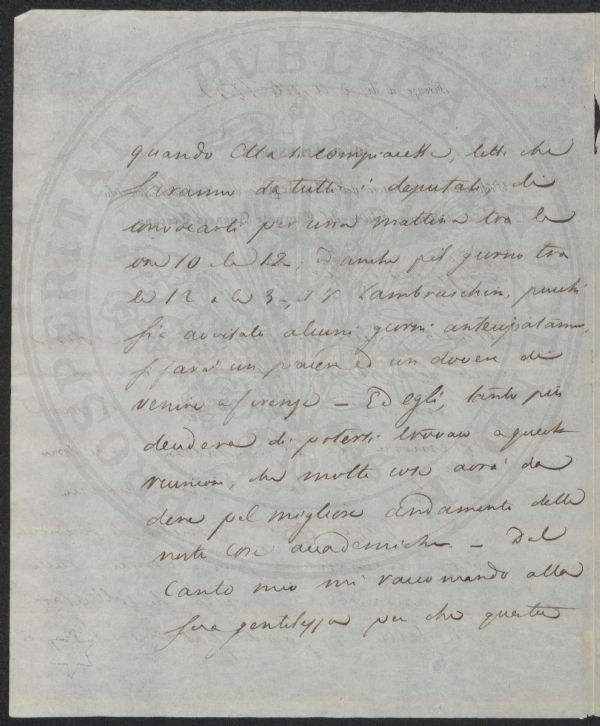 PROSPERITATI PUBLICAE
quando Ella si compiacesse, che
saranno da tutti i deputati di
convocarli per una mattina tra le
ore 10 e le 12, ed anche pel giorno tra
le 12 e le 3, il Sr Lambruschini, purchè
sia avvisato alcuni giorni anticipatamente
si farà un piacere ed un dovere di
venire a Firenze — Ed egli, tanto più
desidera di potersi trovare a questa
reunione, che molte cose avrà da
dire pel migliore andamento delle
nostre cose accademiche. — Dal
Canto mio mi raccomando alla
sua gentilezza per che queste